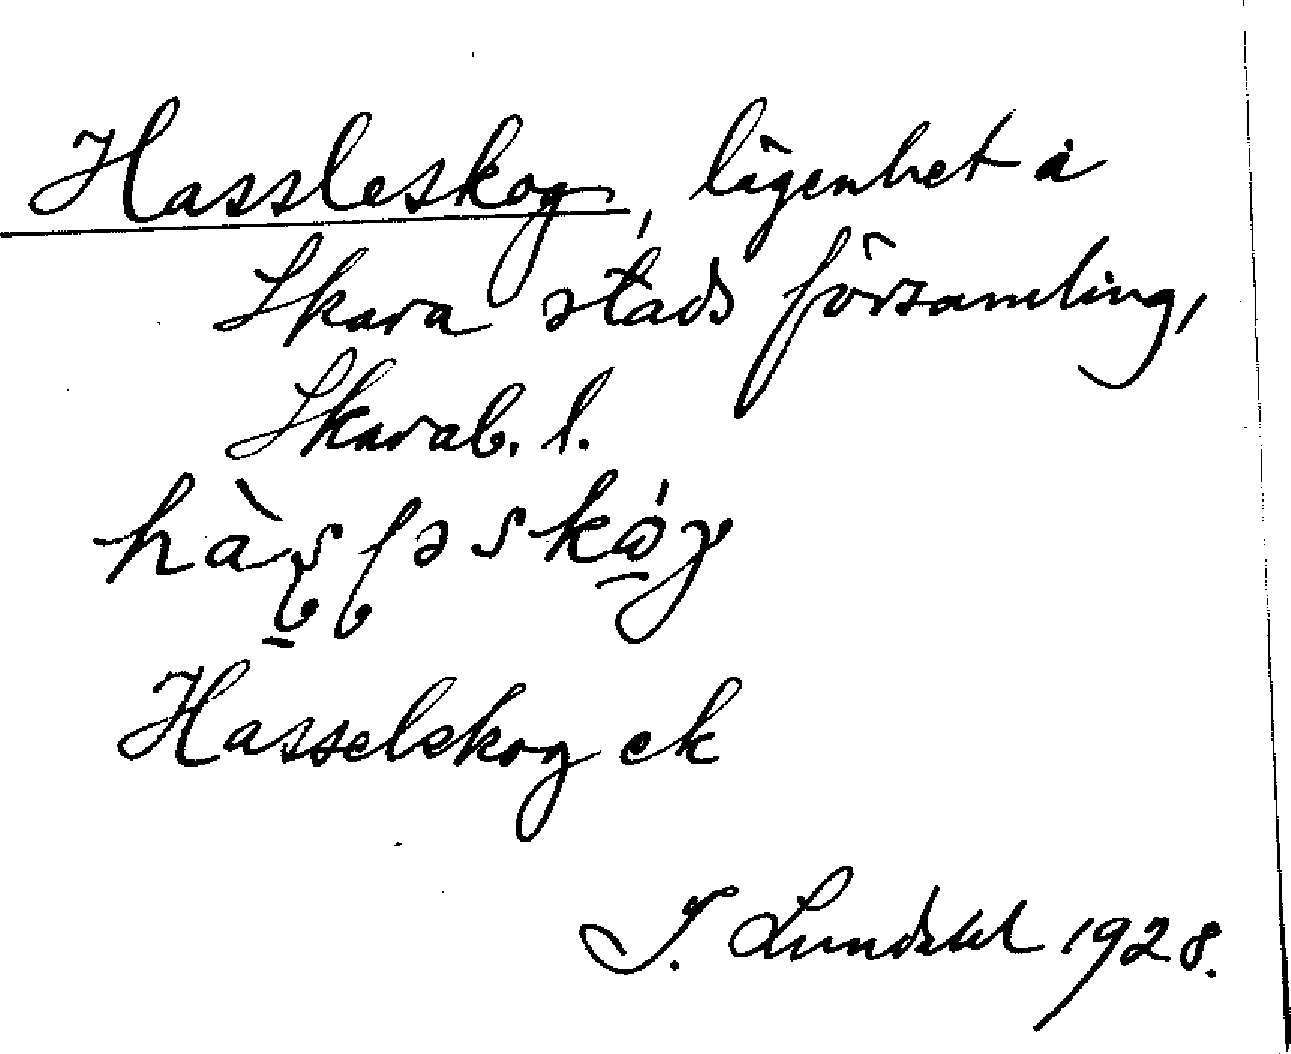 Hassleskog, lägenhet å
Skara stads församling,
Skarab. l.
Hasselskog ek
1928.